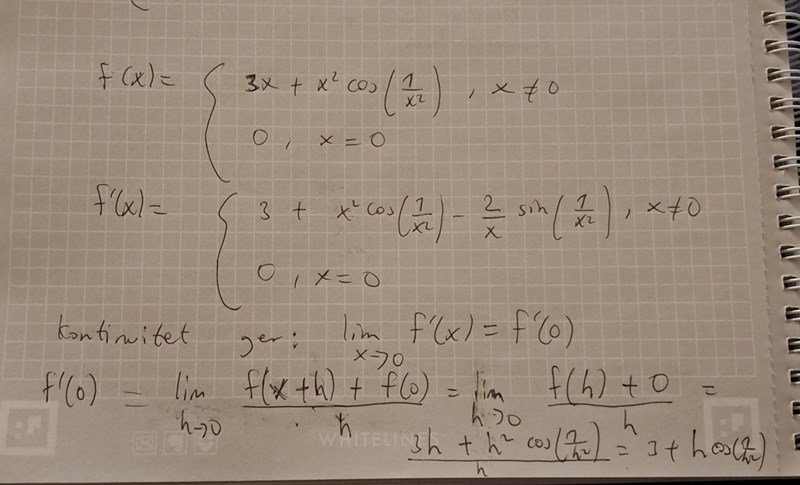 f(x) = { 3x + x² cos(1/x²) , x ≠ 0
0 , x = 0
f'(x) = { 3 + x² cos(1/x²) - 2/x sin(1/x²) , x ≠ 0
0 , x = 0
kontinuitet ger: lim x→0 f'(x) = f'(0)
f'(0) = lim h→0 (f(x+h) + f(0))/h = lim h→0 (f(h) + 0)/h =
(3h + h² cos(1/h²))/h = 3 + h cos(1/h²)
WHITELINES